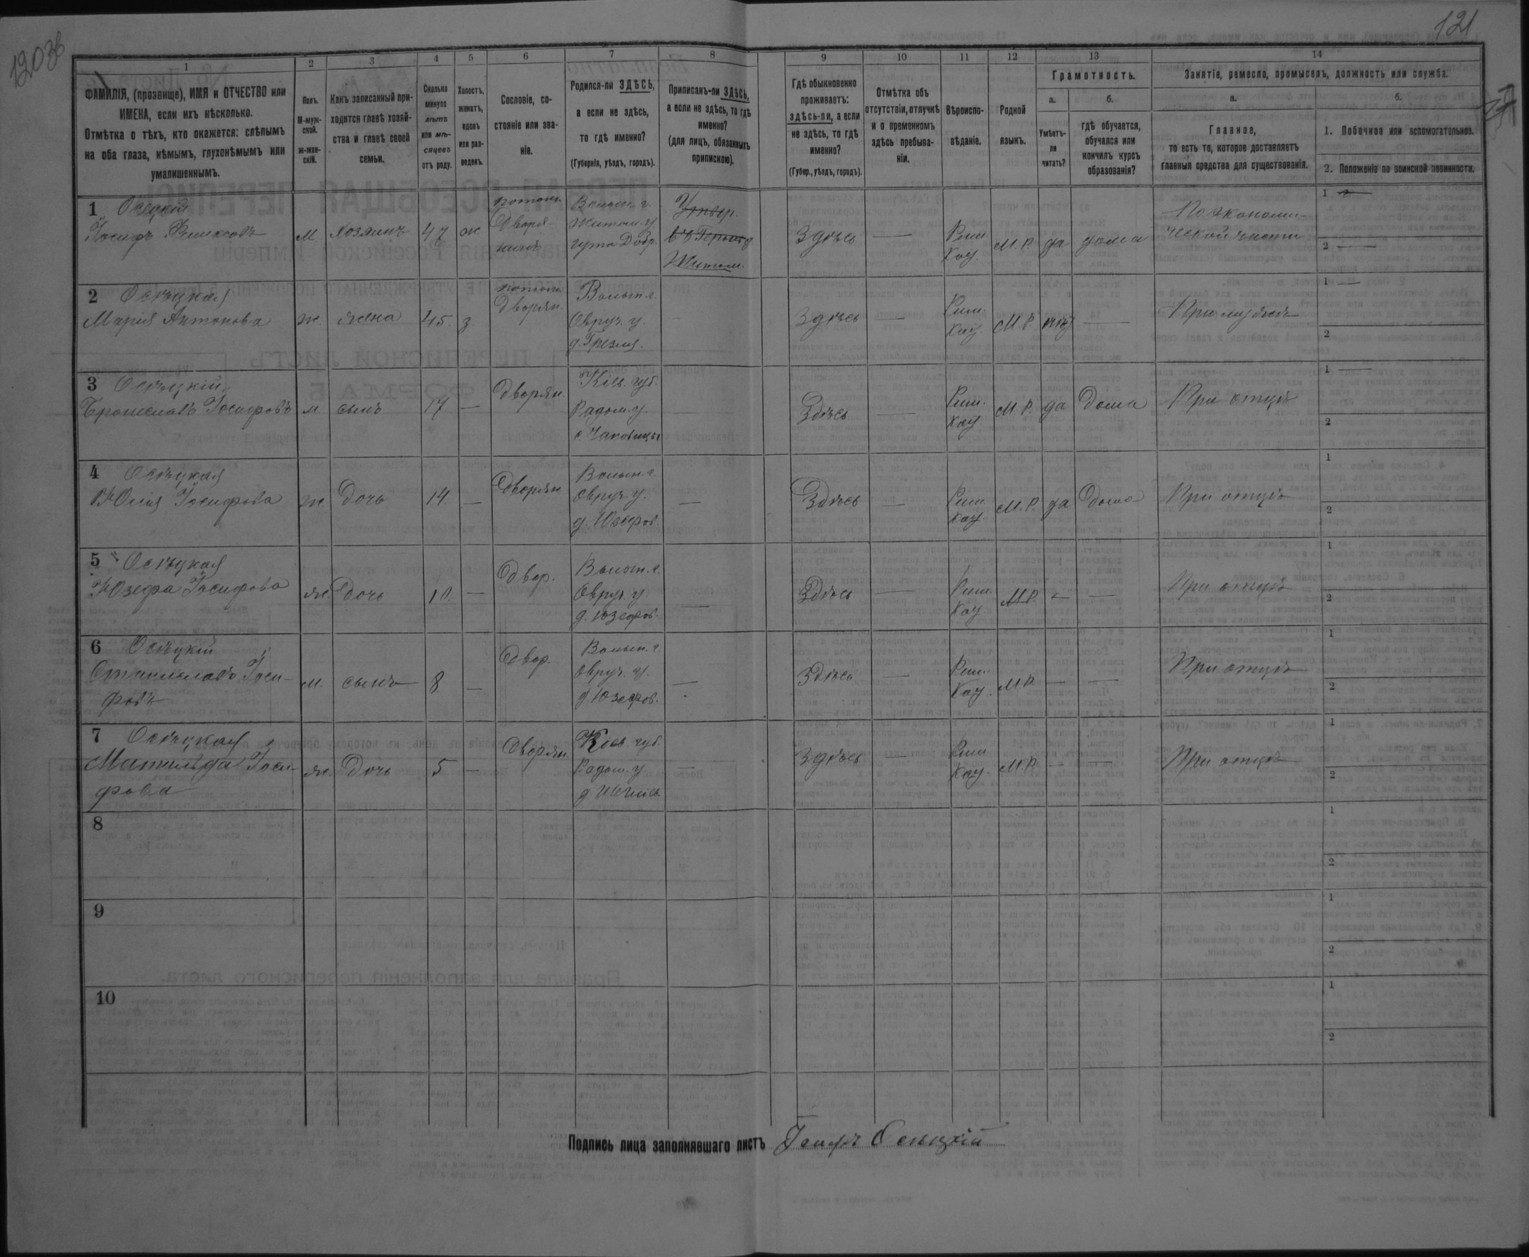 1203б
121
1 2 3 4 5 6 7 8 9 10 11 12 13 14
ФАМИЛІЯ, (прозвище), ИМЯ и ОТЧЕСТВО или
ИМЕНА, если ихъ нѣсколько.
Отмѣтка о тѣхъ, кто окажется: слѣпымъ
на оба глаза, нѣмымъ, глухонѣмымъ или
умалишеннымъ.
Полъ.
М-муж-
ской.
ж-жен-
скій.
Какъ записанный при-
ходится главѣ хозяй-
ства и главѣ своей
семьи.
Сколько
минуло
лѣтъ
или мѣ-
сяцевъ
отъ роду.
Холостъ,
женатъ,
вдовъ
или раз-
веденъ.
Сословіе, со-
стояніе или зва-
ніе.
Родился-ли ЗДѢСЬ,
а если не здѣсь,
то гдѣ именно?
(Губернія, уѣздъ, городъ).
Приписанъ-ли ЗДѢСЬ,
а если не здѣсь, то гдѣ
именно?
(для лицъ, обязанныхъ
припискою).
Гдѣ обыкновенно
проживаетъ:
здѣсь-ли, а если
не здѣсь, то гдѣ
именно?
(Губер., уѣздъ, городъ).
Отмѣтка объ
отсутствіи, отлучкѣ
и о временномъ
здѣсь пребыва-
ніи.
Вѣроиспо-
вѣданіе.
Родной
языкъ.
Грамотность.
а.
Умѣетъ-
ли
читать?
б.
гдѣ обучается,
обучался или
кончилъ курсъ
образованія?
Занятіе, ремесло, промыселъ, должность или служба.
а.
Главное,
то есть то, которое доставляетъ
главныя средства для существованія.
б.
1. Побочное или вспомогательное.
2. Положеніе по воинской повинности.
1
Іосифъ
м хозяинъ 47 ж
Волын. г.
Житом. у.
Здѣсь — М.Р. да дома
По экономи-
ческой части
1
2 —
2 Осѣцкая
Марія Антонова ж жена 45. з
потом.
Дворян.
Волын. г.
Овруч. у.
Здѣсь — Рим. Кат М.Р. — При мужѣ
1 —
2
3 Осѣцкій
Брониславъ Іосифовъ м. сынъ 17 — Дворян.
Кіев. губ.
Радом. у.
Здѣсь — Рим. Кат М.Р. да Дома При отцѣ
1 —
2
4 Осѣцкая
Юлія Іосифова ж. Дочь 14 — Дворян
Волын. г.
Овруч. у.
— Здѣсь — Рим Кат М.Р. да Дома При отцѣ
1
2
5 Осѣцкая
Юзефа Іосифова ж. Дочь 10 — Двор.
Волын. г.
Овруч. у.
д. Юзефов.
— Здѣсь — Рим. Кат М.Р. — — При отцѣ
1
2
6 Осѣцкій
Станиславъ Іоси-
фовъ
м. сынъ 8 — Двор.
Волын. г.
Овруч. у.
д. Юзефов.
— Здѣсь — Рим. Кат М.Р. — — При отцѣ
1
2
7 Осѣцкая
Матильда Іоси-
фова
ж. Дочь 5 — Дворян
Кіев. губ.
Радом. у.
— Здѣсь — Рим Кат. М.Р. — — При отцѣ
1
2
8
1
2
9
1
2
10
1
2
Подпись лица заполнявшаго листъ Іосифъ Осѣцкій